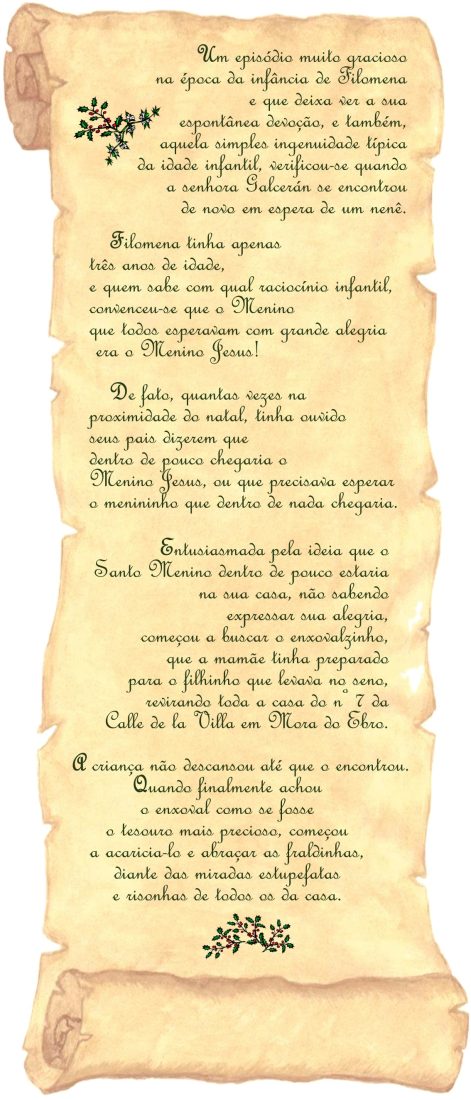 Um episódio muito gracioso
na época da infância de Filomena
e que deixa ver a sua
espontânea devoção, e também,
aquela simples ingenuidade típica
da idade infantil, verificou-se quando
a senhora Galcerán se encontrou
de novo em espera de um nenê.
Filomena tinha apenas
três anos de idade,
e quem sabe com qual raciocínio infantil,
convenceu-se que o Menino
que todos esperavam com grande alegria
era o Menino Jesus!
De fato, quantas vezes na
proximidade do natal, tinha ouvido
seus pais dizerem que
dentro de pouco chegaria o
Menino Jesus, ou que precisava esperar
o menininho que dentro de nada chegaria.
Entusiasmada pela ideia que o
Santo Menino dentro de pouco estaria
na sua casa, não sabendo
expressar sua alegria,
começou a buscar o enxovalzinho,
que a mamãe tinha preparado
para o filhinho que levava no seno,
revirando toda a casa do nº 7 da
Calle de la Villa em Mora do Ebro.
A criança não descansou até que o encontrou.
Quando finalmente achou
o enxoval como se fosse
o tesouro mais precioso, começou
a acaricia-lo e abraçar as fraldinhas,
diante das miradas estupefatas
e risonhas de todos os da casa.